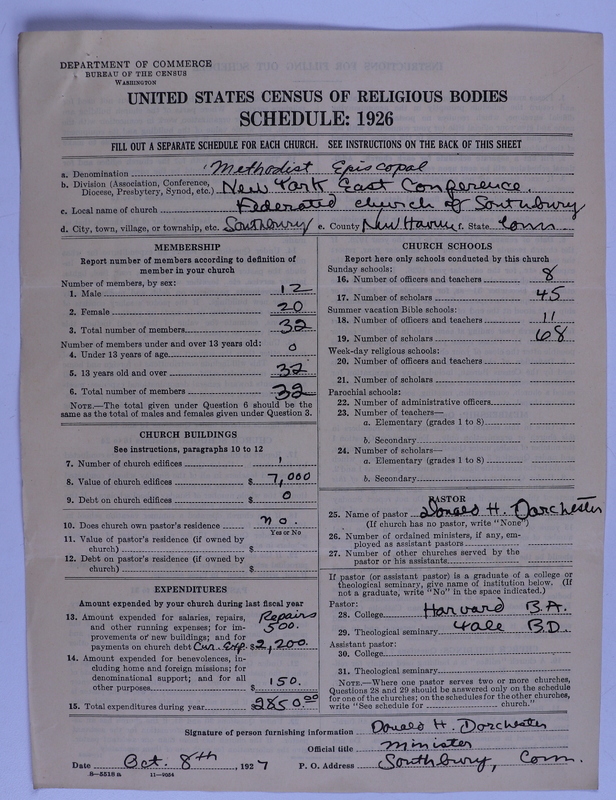 DEPARTMENT OF COMMERCE
BUREAU OF THE CENSUS
WASHINGTON
UNITED STATES CENSUS OF RELIGIOUS BODIES
SCHEDULE: 1926
FILL OUT A SEPARATE SCHEDULE FOR EACH CHURCH. SEE INSTRUCTIONS ON THE BACK OF THIS SHEET
a. Denomination Methodist Episcopal
b. Division (Association, Conference, Diocese, Presbytery, Synod, etc.) New York East Conference.
c. Local name of church Federated church of Southbury
d. City, town, village, or township, etc. Southbury e. County New Haven f. State Conn
MEMBERSHIP
Report number of members according to definition of
member in your church
Number of members, by sex:
1. Male 12
2. Female 20
3. Total number of members 32
Number of members under and over 13 years old:
4. Under 13 years of age 0
5. 13 years old and over 32
6. Total number of members 32
NOTE.—The total given under Question 6 should be the
same as the total of males and females given under Question 3.
CHURCH BUILDINGS
See instructions, paragraphs 10 to 12
7. Number of church edifices 1
8. Value of church edifices $ 7,000
9. Debt on church edifices $ 0
10. Does church own pastor's residence no.
Yes or No
11. Value of pastor's residence (if owned by
church) $
12. Debt on pastor's residence (if owned by
church) $
EXPENDITURES
Amount expended by your church during last fiscal year
13. Amount expended for salaries, repairs, Repairs
and other running expenses; for im- 500.
provements or new buildings; and for
payments on church debt Cur. Exp. $ 2,200.
14. Amount expended for benevolences, in-
cluding home and foreign missions; for
denominational support; and for all
other purposes $ 150.
15. Total expenditures during year $2850.00
CHURCH SCHOOLS
Report here only schools conducted by this church
Sunday schools:
16. Number of officers and teachers 8
17. Number of scholars 45
Summer vacation Bible schools:
18. Number of officers and teachers 11
19. Number of scholars 68
Week-day religious schools:
20. Number of officers and teachers
21. Number of scholars
Parochial schools:
22. Number of administrative officers
23. Number of teachers—
a. Elementary (grades 1 to 8)
b. Secondary
24. Number of scholars—
a. Elementary (grades 1 to 8)
b. Secondary
PASTOR
25. Name of pastor Donald H. Dorchester
(If church has no pastor, write "None")
26. Number of ordained ministers, if any, em-
ployed as assistant pastors
27. Number of other churches served by the
pastor or his assistants
If pastor (or assistant pastor) is a graduate of a college or
theological seminary, give name of institution below. (If
not a graduate, write "No" in the space indicated.)
Pastor:
28. College Harvard B.A.
29. Theological seminary Yale B.D.
Assistant pastor:
30. College
31. Theological seminary
NOTE.—Where one pastor serves two or more churches,
Questions 28 and 29 should be answered only on the schedule
for one of the churches; on the schedules for the other churches,
write "See schedule for church."
Signature of person furnishing information Donald H. Dorchester
Official title Minister
Date Oct. 8th, 1927 P. O. Address Southbury, Conn.
8—5518 a 11—9054